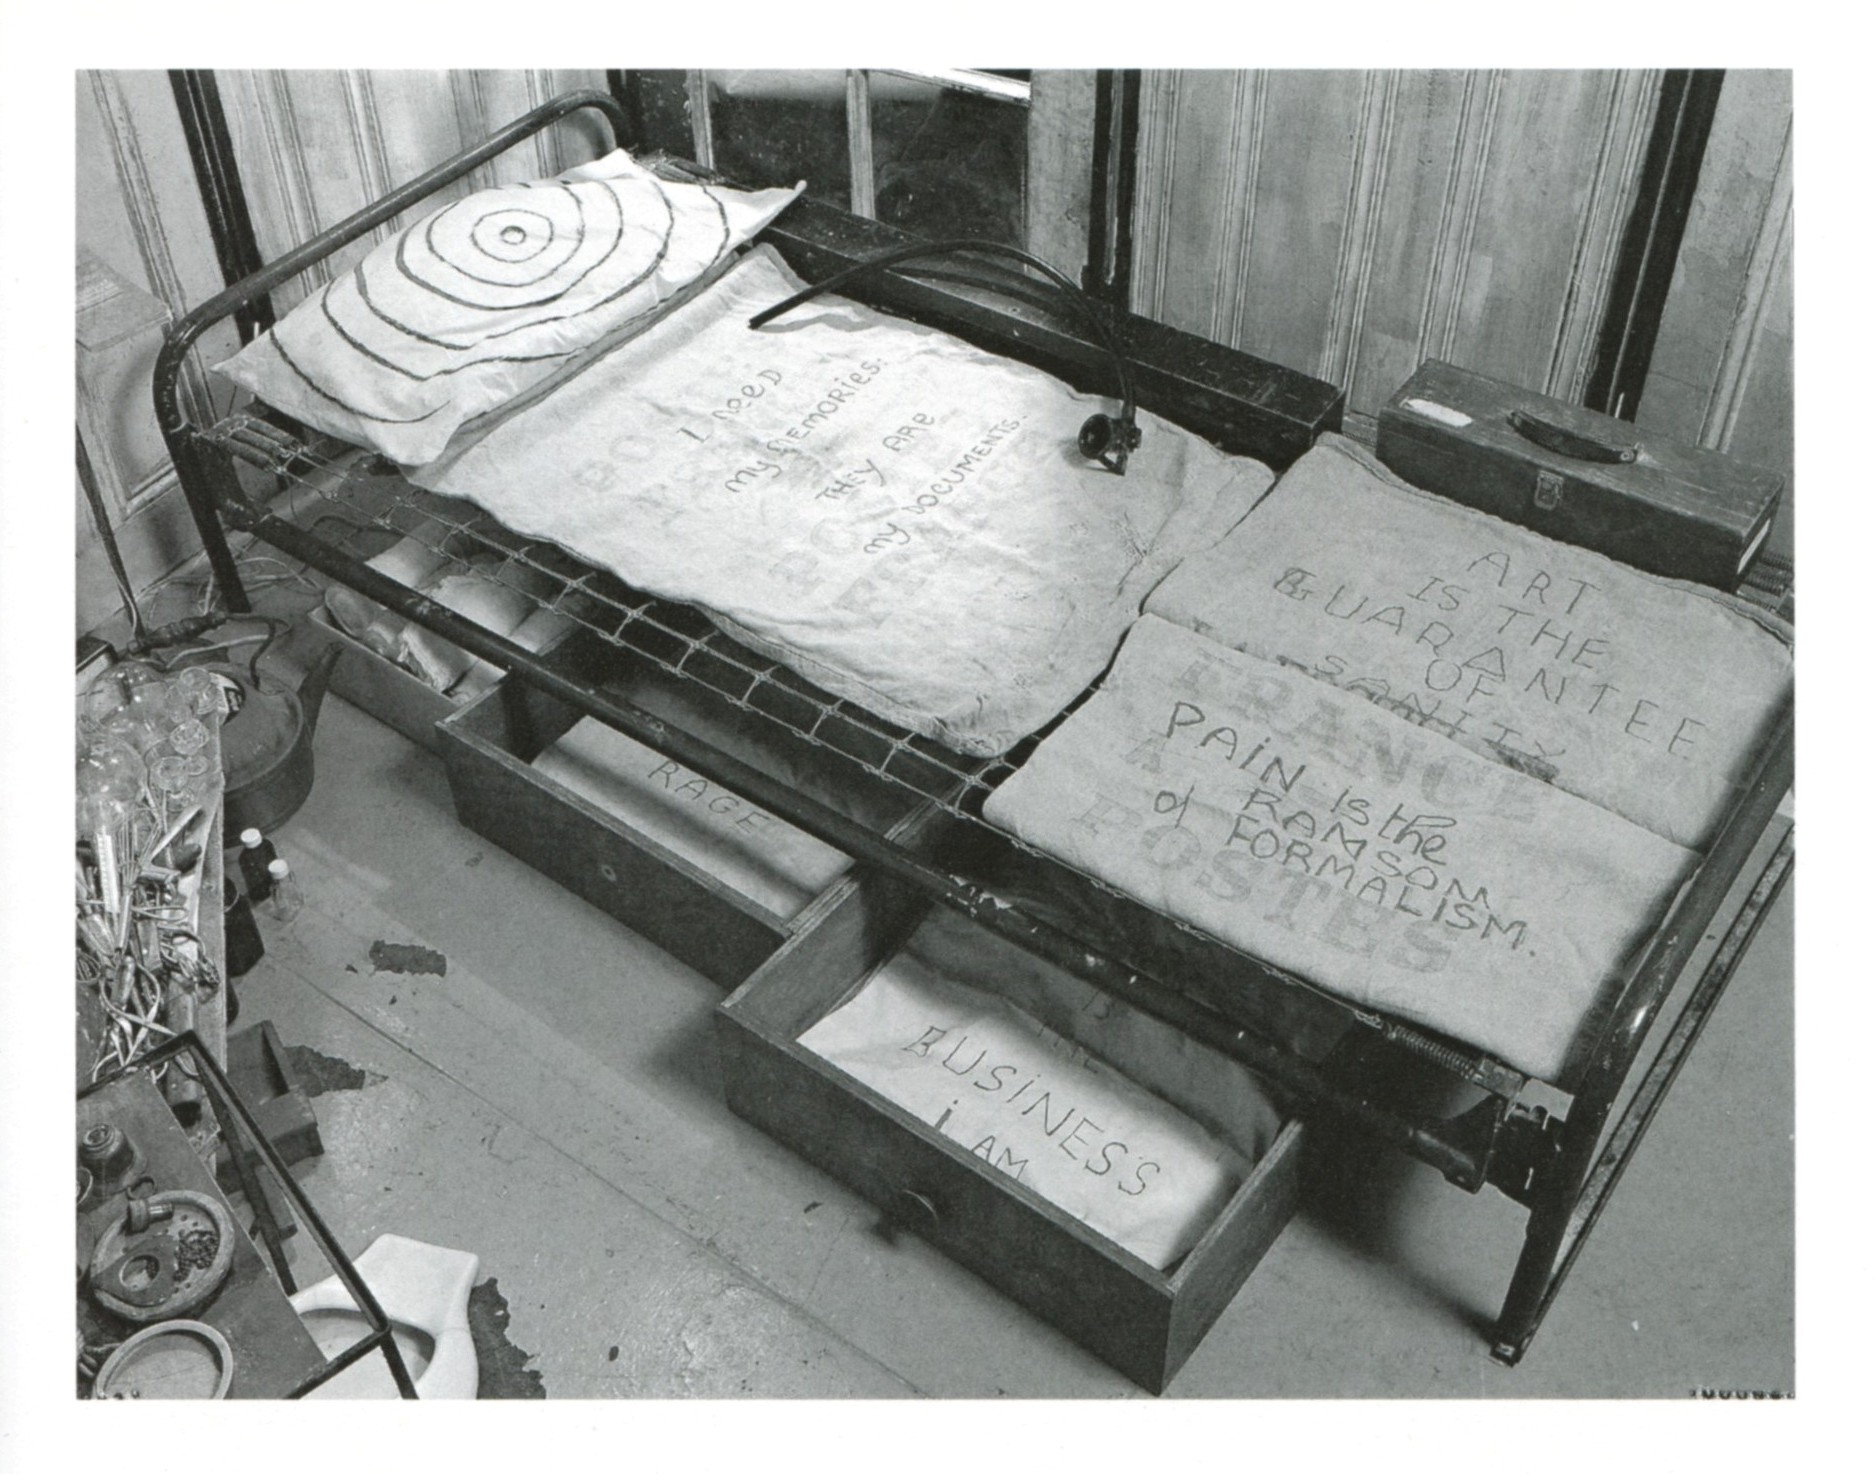 I need
my MEMORIES.
THEY ARE
my DOCUMENTS.
ART
IS THE
GUARANTEE
OF
SANITY
FRANCE
POSTES
PAiN is the
RAMSOM
of FORMALISM.
RAGE
BUSiNES'S
i AM